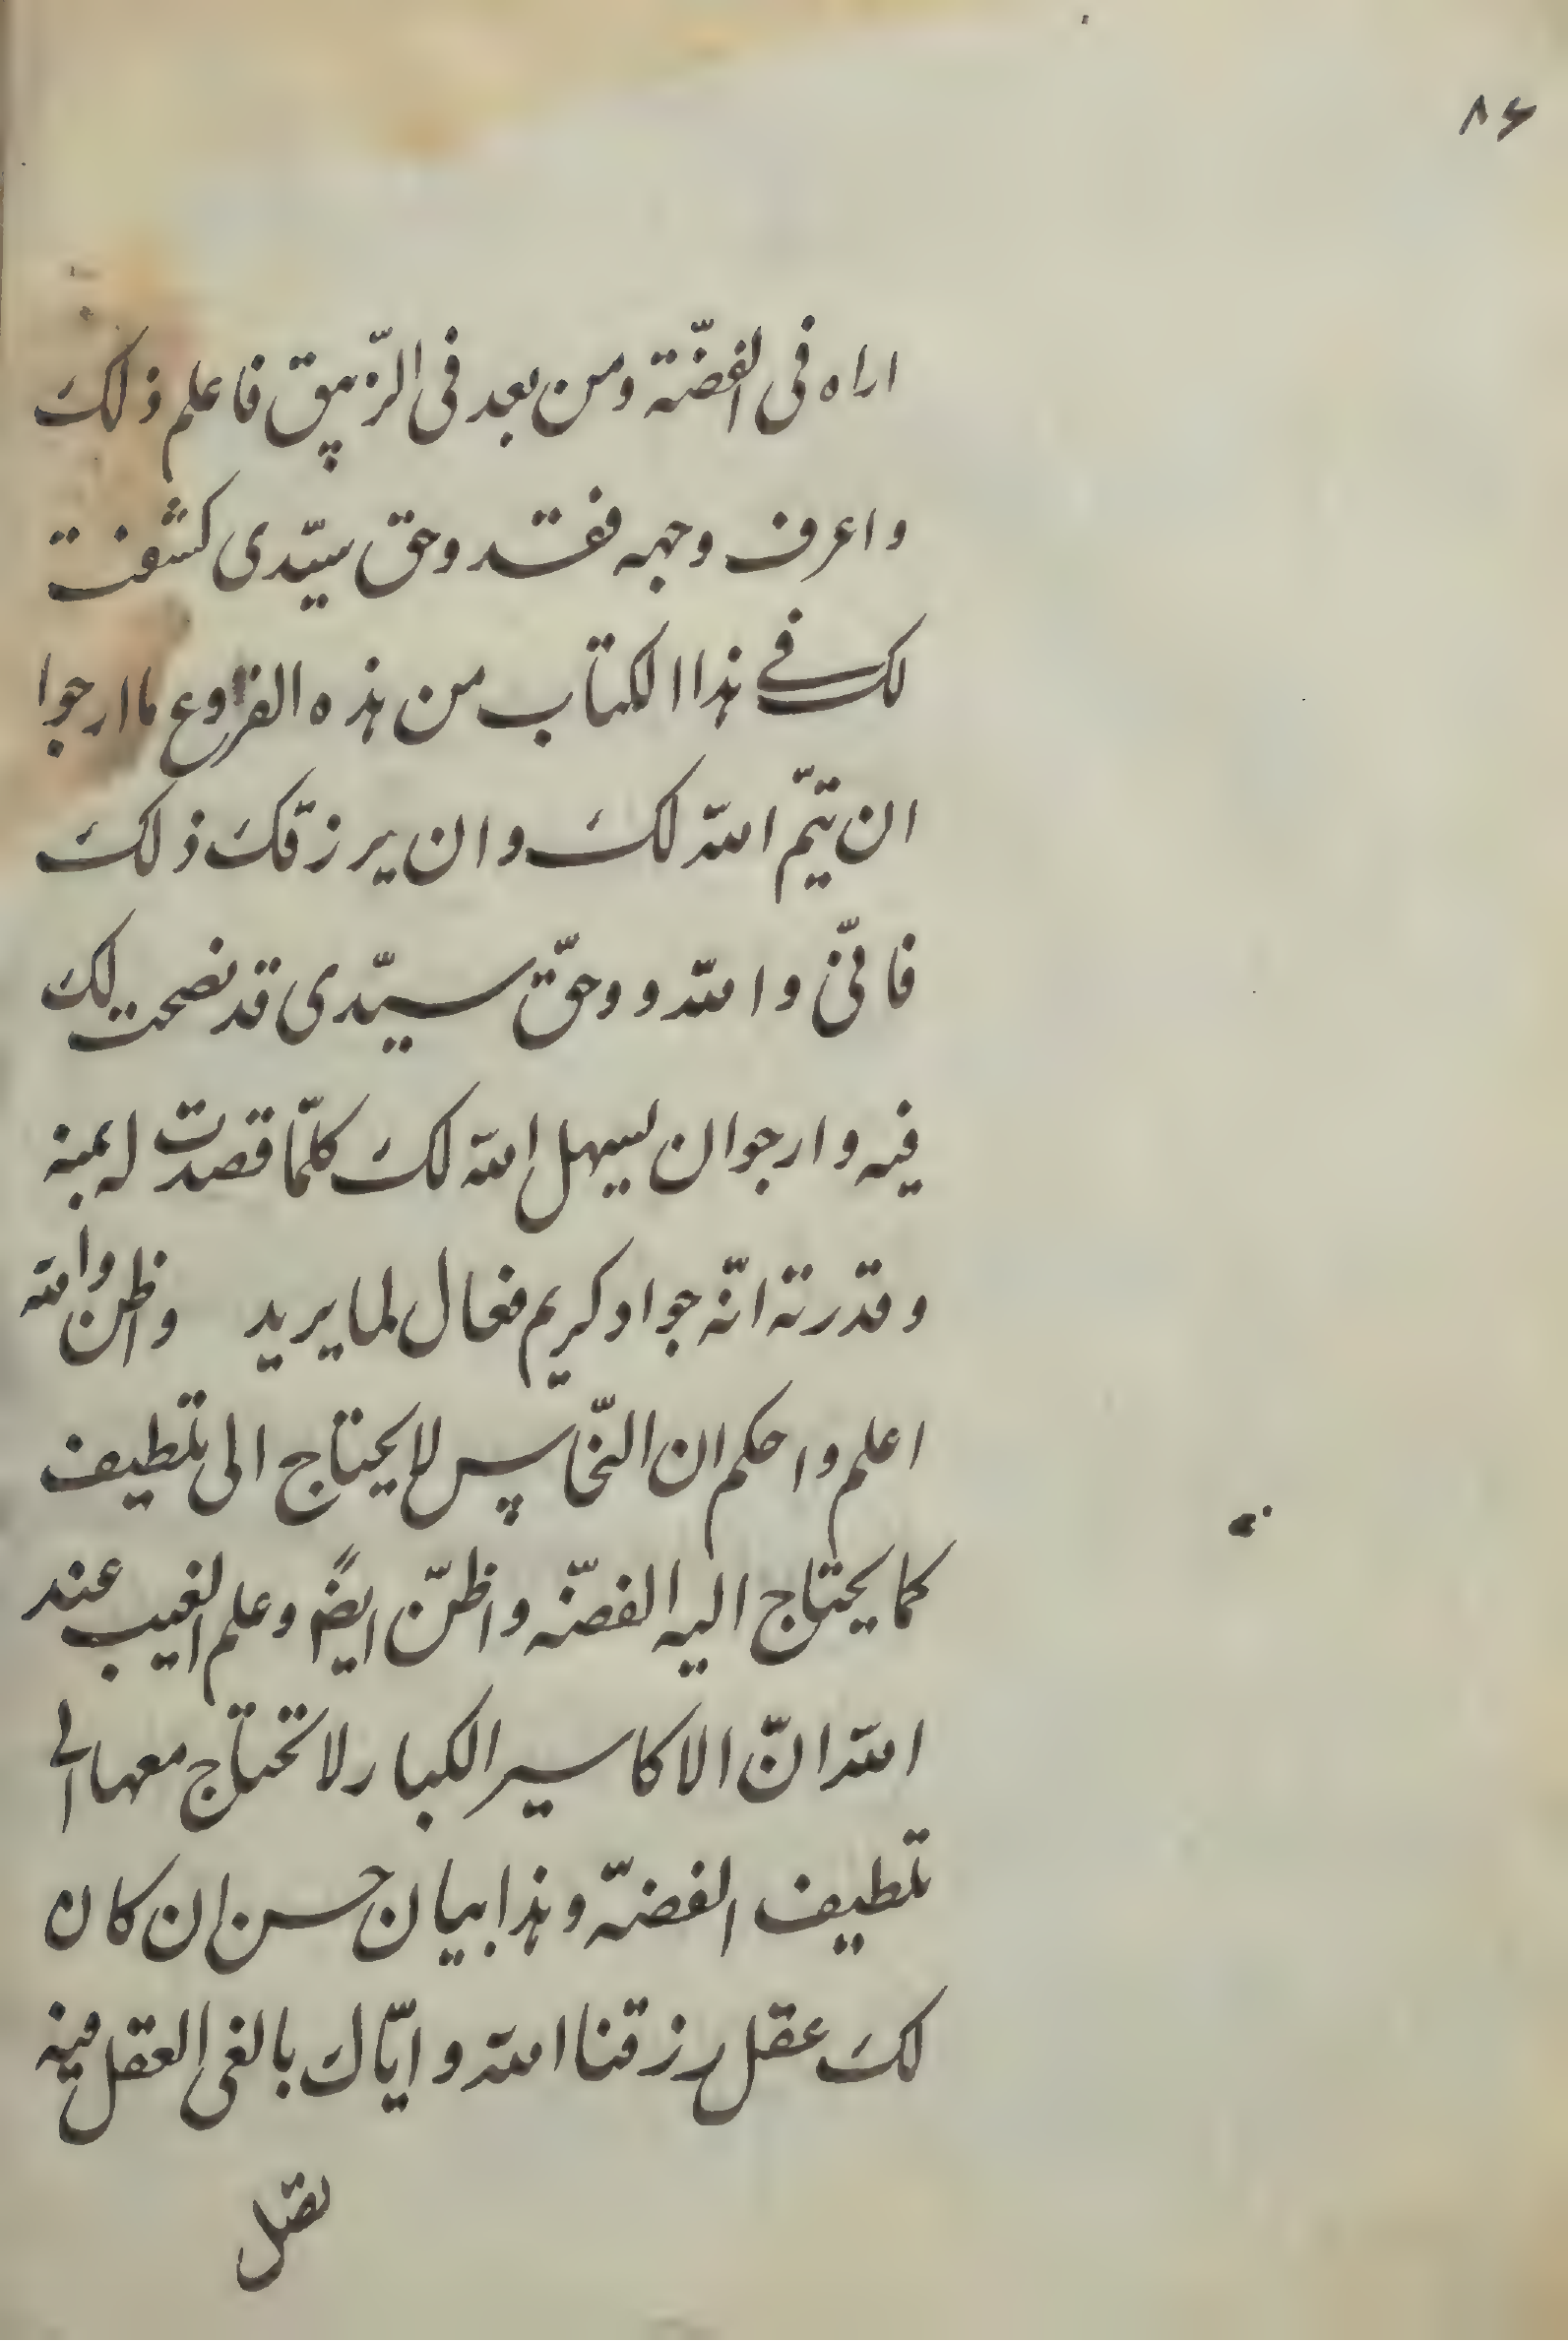 ٨۶
اراه فى الفضّة ومن بعد فى الزّيبق فاعلم ذلك
واعرف وجهه فقد وحق سيّدى كشفت
لك فى هذا الكتاب من هذه الفروع ما ارجوا
ان يتمّ الله لك وان يرزقك ذلك
فانّى والله ووحقّ سيّدى قد نصحت لك
فيه وارجو ان يسهل الله لك كلّما قصدت له بمنه
وقدرته انّه جواد كريم فعال لما يريد واظن والله
اعلم واحكم ان النّحاس لا يحتاج الى تلطيف
كما يحتاج اليه الفضّه واظنّ ايضً وعلم الغيب عند
الله انّ الاكاسير الكبار لا تحتاج معها الى
تلطيف الفضّه وهذا بيان حسن ان كان
لك عقل رزقنا الله وايّاك بالغى العقل فيه